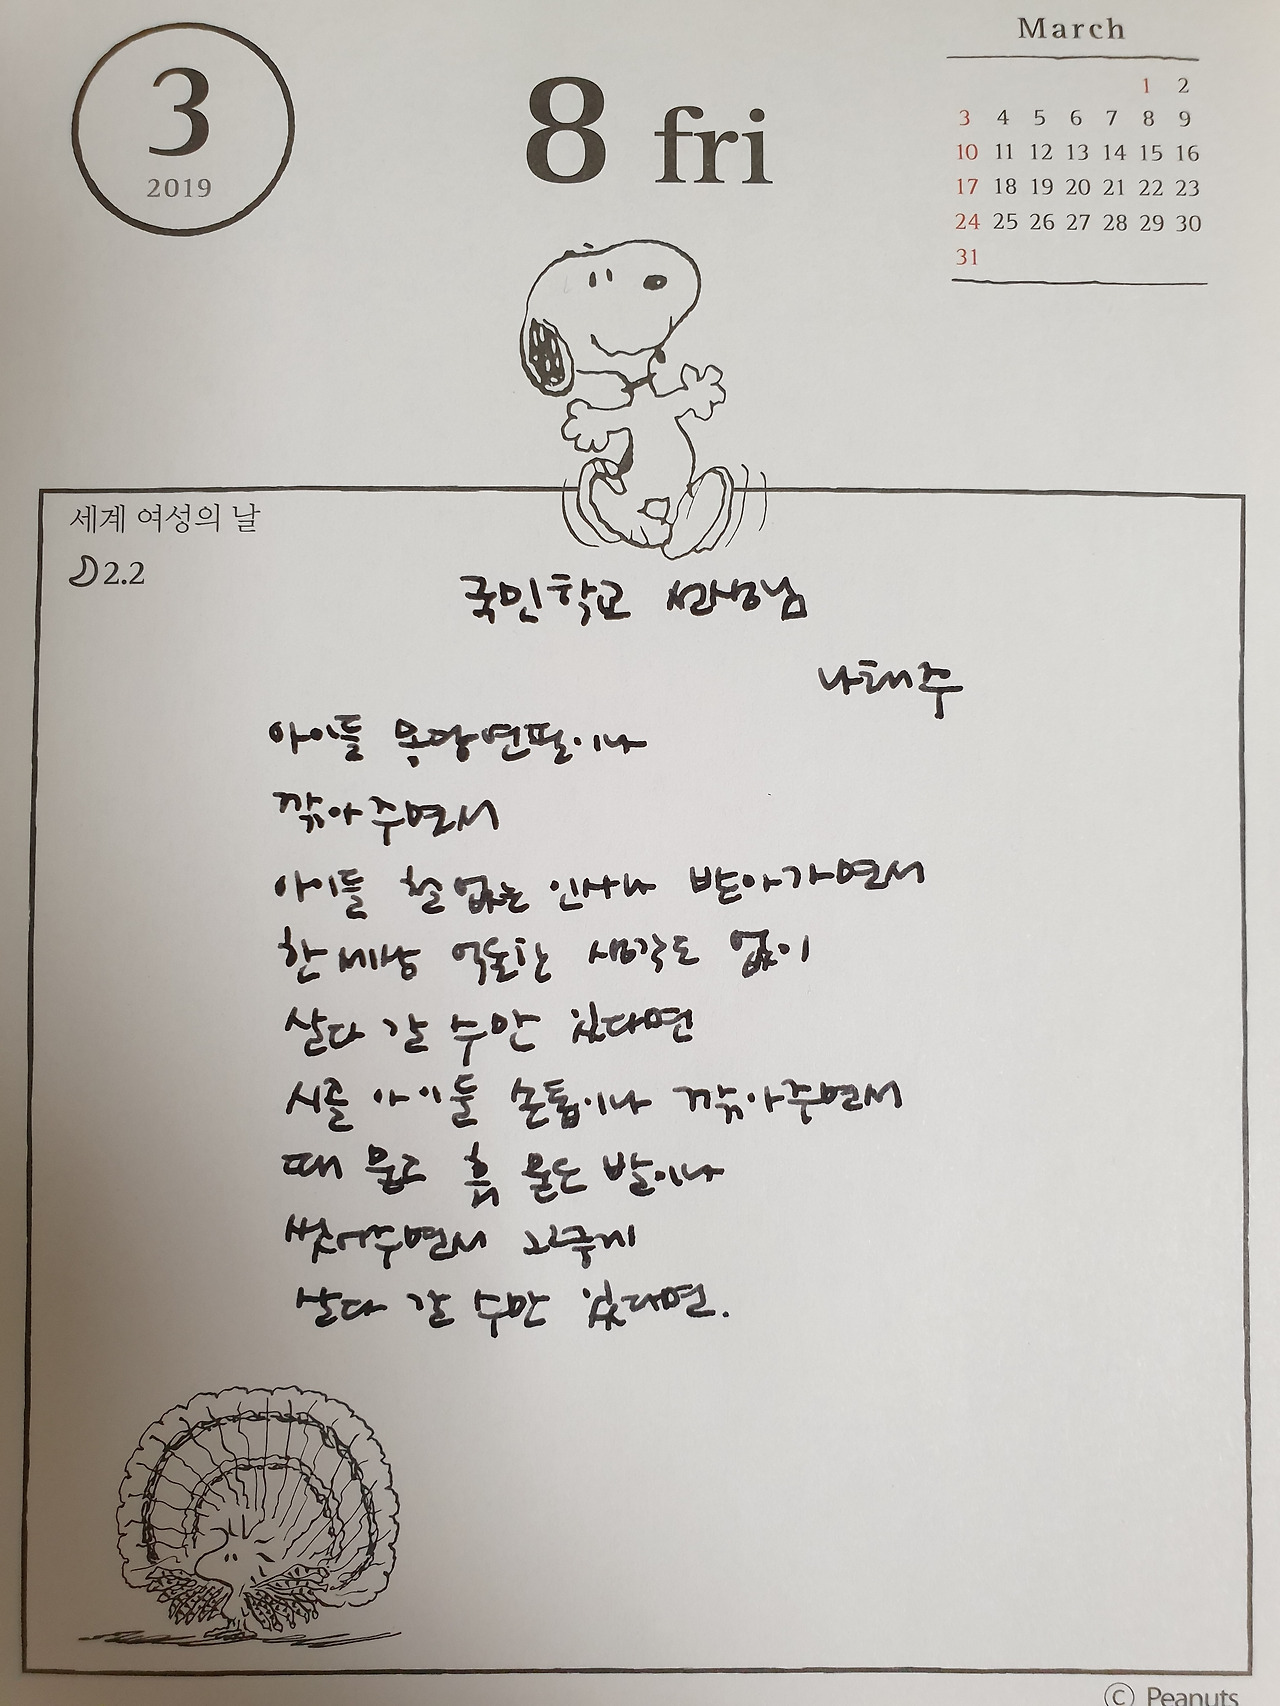 3
2019
8 fri
March
1 2
3 4 5 6 7 8 9
10 11 12 13 14 15 16
17 18 19 20 21 22 23
24 25 26 27 28 29 30
31
세계 여성의 날
2.2
국민학교 선생님
나태주
아이들 몽당연필이나
깎아 주면서
아이들 철없는 인사나 받아가면서
한 세상 억울한 생각도 없이
살다 갈 수만 있다면
시골 아이들 손톱이나 깎아주면서
때 묻고 흙 묻은 발이나
씻어주면서 그렇게
살다 갈 수만 있다면.
© Peanuts